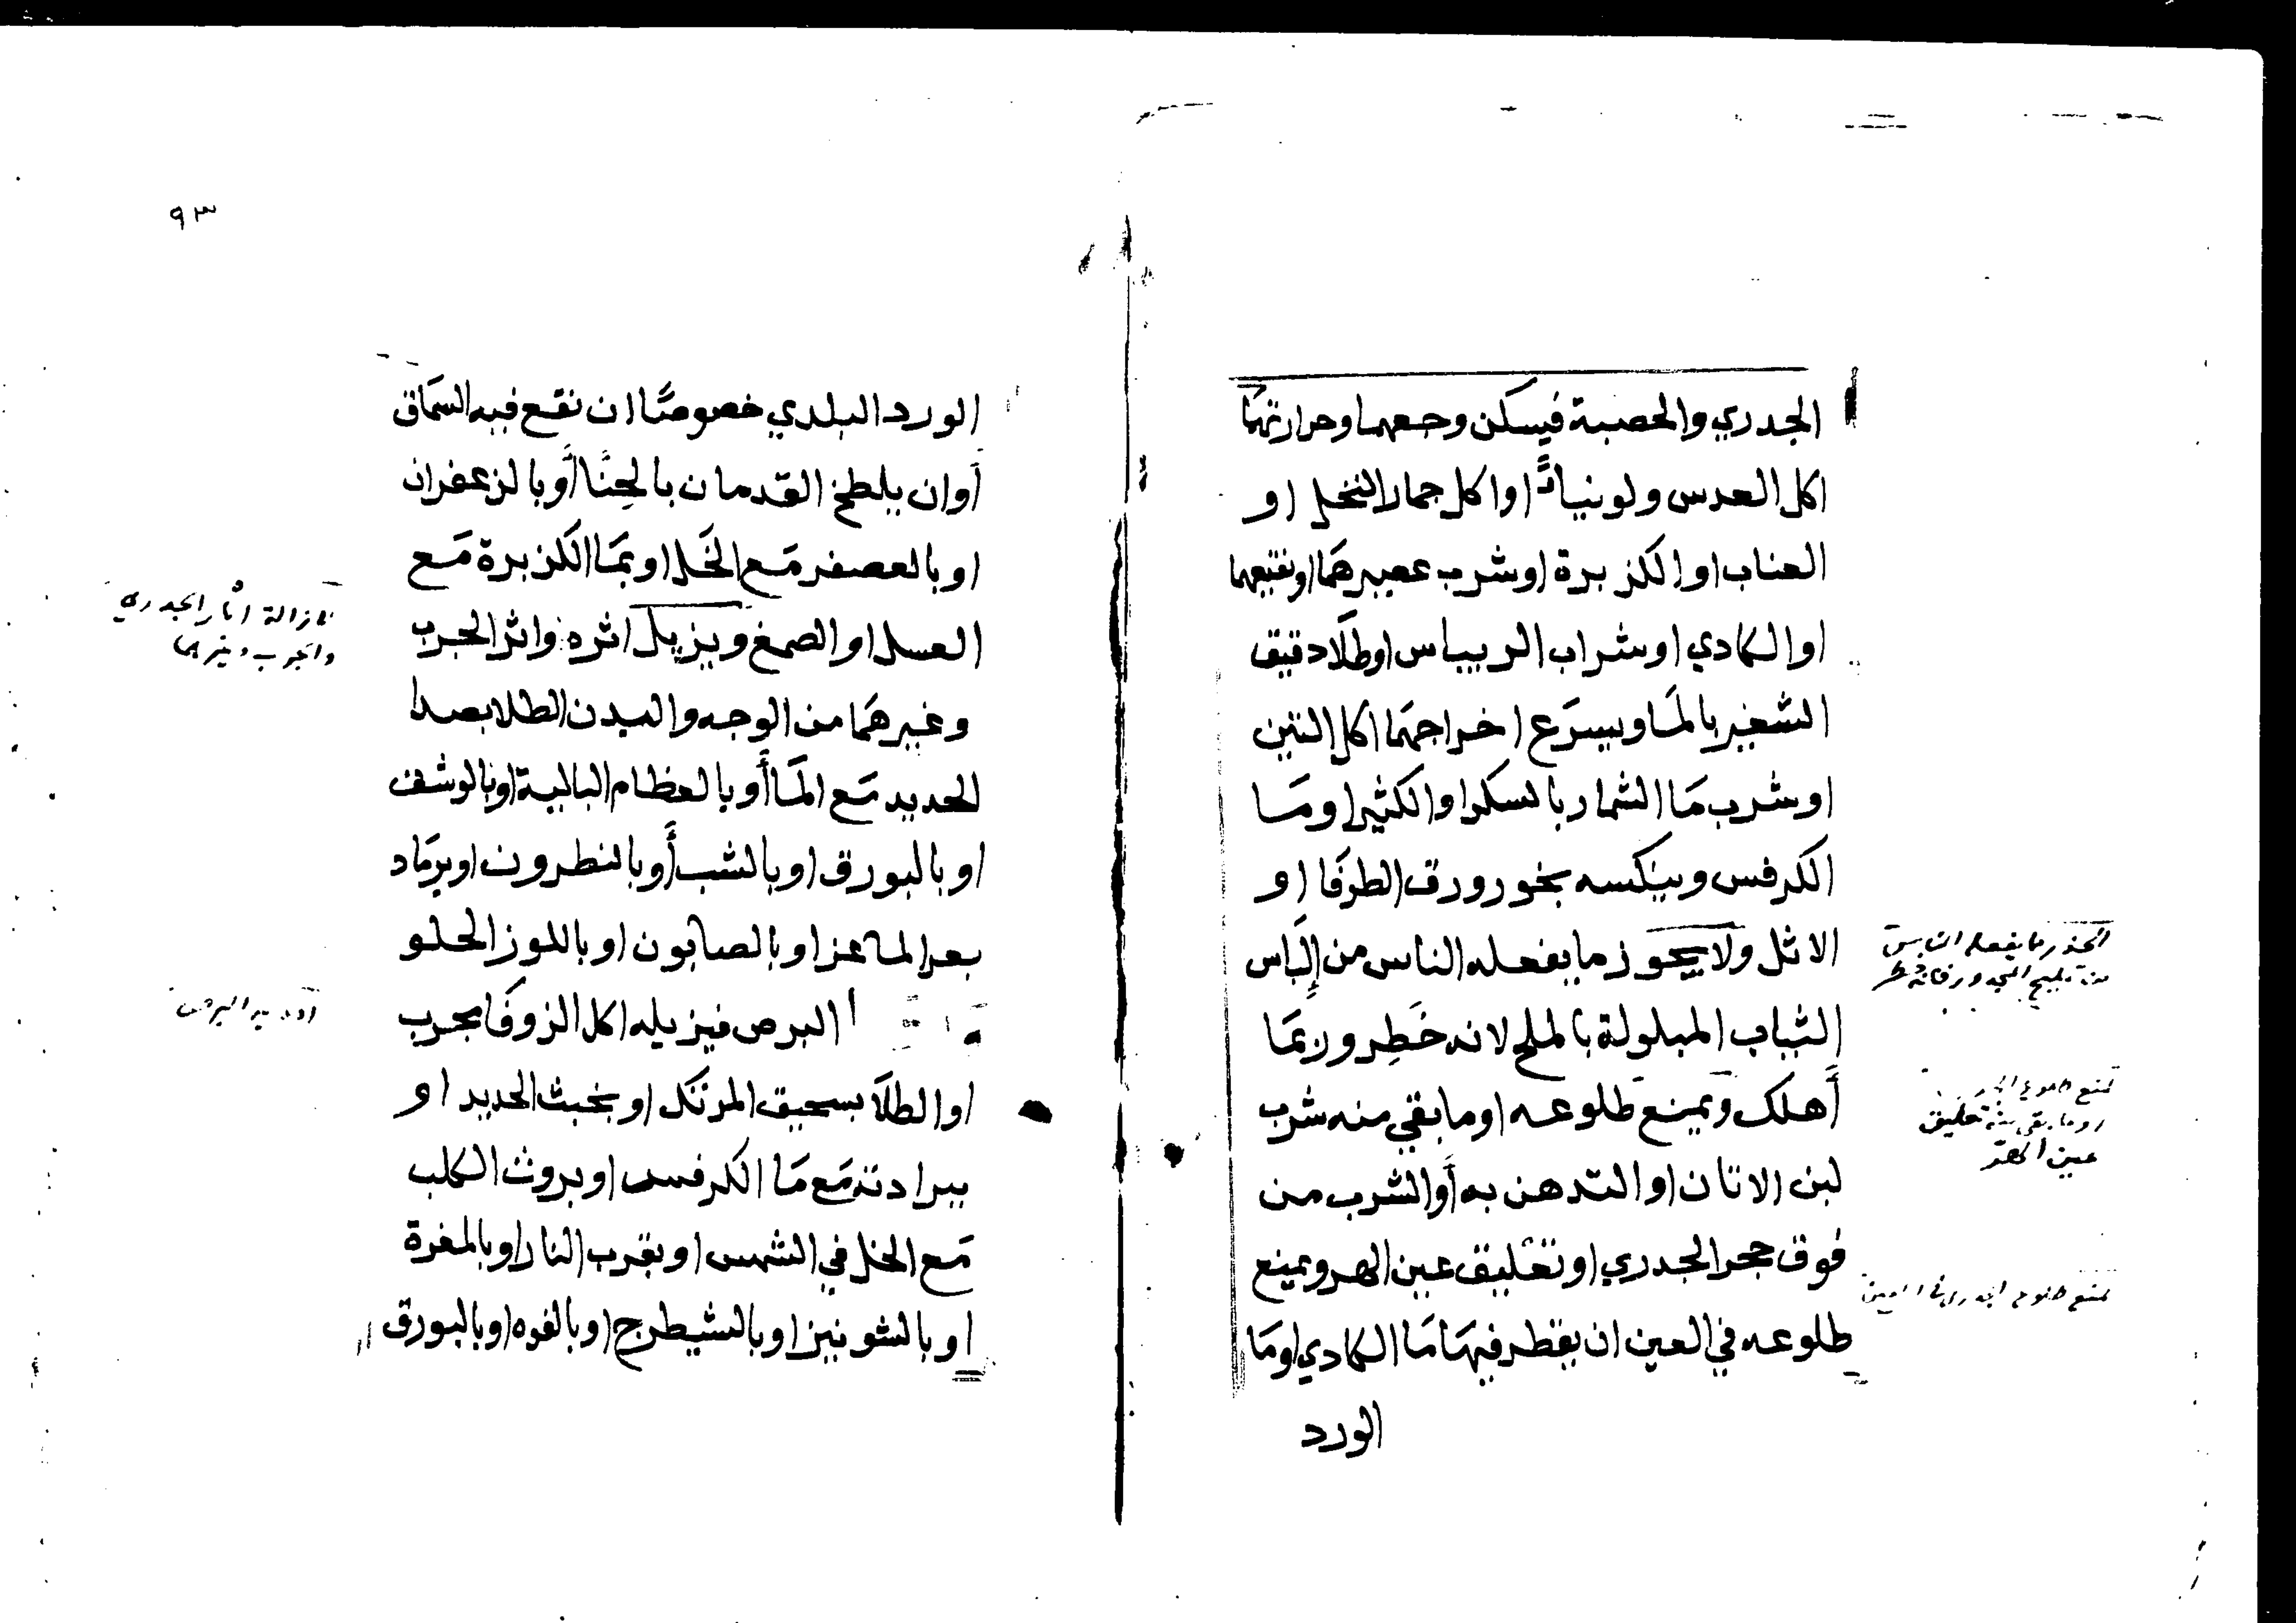 الجدري والحصبة فيسكن وجعهما وحرارتهما
اكل العدس ولو نيأ او اكل جمار النخل او
العناب او الكزبرة او شرب عصيرهما او نقيعهما
او الكادي او شراب الريباس او طلا دقيق
الشعير بالما ويسرع اخراجهما اكل التين
او شرب ما الشمار بالسكر او الكثيرا وما
الكرفس وينكسه بخور ورق الطرفا او
الاثل ولا يجوز ما يفعله الناس من إلباس
الثياب المبلولة بالملح لانه خطر وربما
أهلك ويمنع طلوعه او ما بقي منه شرب
لبن الاتان او التدهن به أو الشرب من
فوق حجر الجدري او تعليق عين الهر ويمنع
طلوعه في العين ان يقطر فيها ما الكادي او ما
الورد
الحذر ما يفعله الناس
من
تمنع طلوع
او ما بقي منه تعليق
عين الهر
تمنع طلوع الجدري في العين
٩٣
الورد البلدي خصوصًا ان نقع فيه السماق
أو ان يلطخ القدمان بالحنا أو بالزعفران
او بالعصفر مع الخل او بما الكزبرة مع
العسل او الصمغ ويزيل اثره واثر الجرب
وغيرهما من الوجه والبدن الطلا بصدا
الحديد مع الما أو بالعظام البالية او بالوشف
او بالبورق او بالشب أو بالنطرون او برماد
بعر الماعز او بالصابون او باللوز الحلو
البرص فيزيله اكل الزوفا مجرب
او الطلا بسحيق المرتك او بخبث الحديد او
ببرادته مع ما الكرفس او بروث الكلب
مع الخل في الشمس او بقرب النار او بالمغرة
او بالشونيز او بالشيطرج او بالفوه او بالبورق
لازالة اثار الجدري
والجرب وغيرهما
البرص